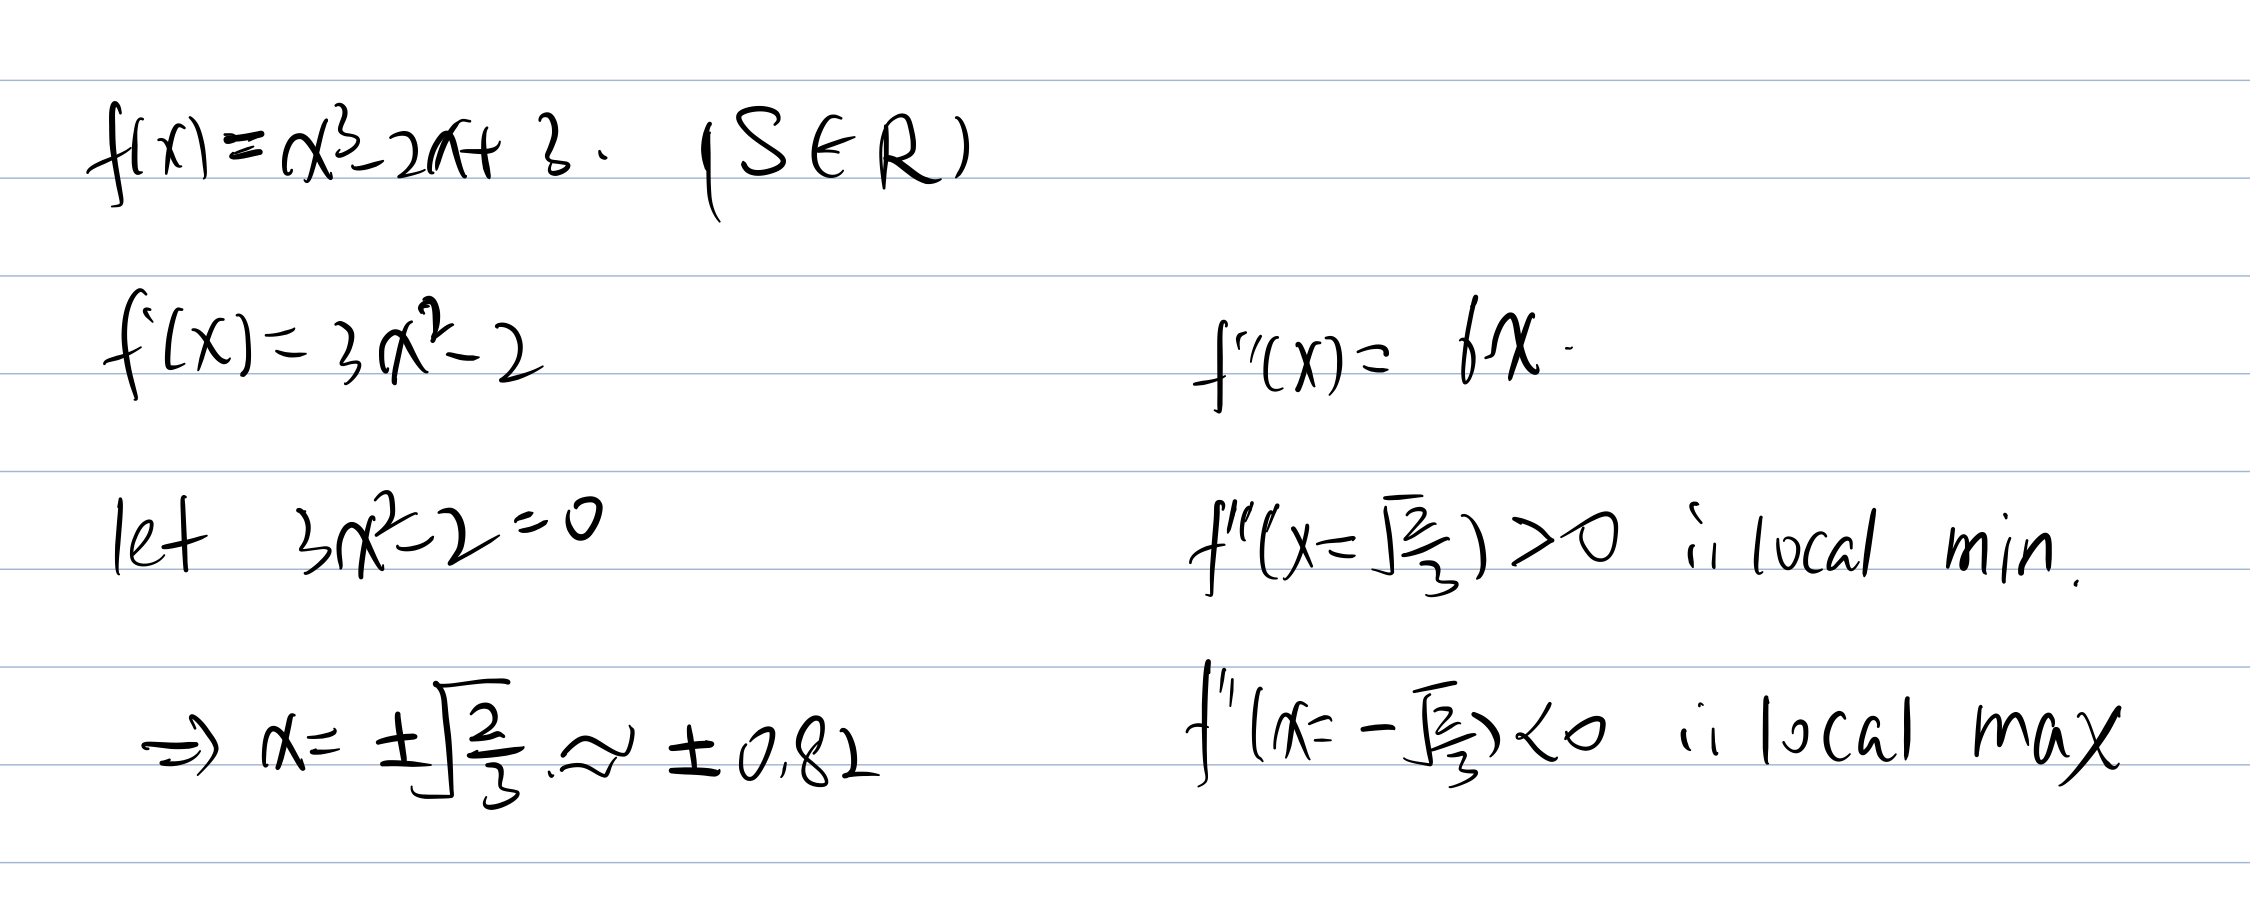 f(x) = x³ - 2x + 3. (S ∈ R)
f'(x) = 3x² - 2
f''(x) = 6x.
let 3x² - 2 = 0
f''(x = √(2/3)) > 0 ii local min.
⇒ x = ±√(2/3). ≈ ± 0.82
f''(x = -√(2/3)) < 0 ii local max